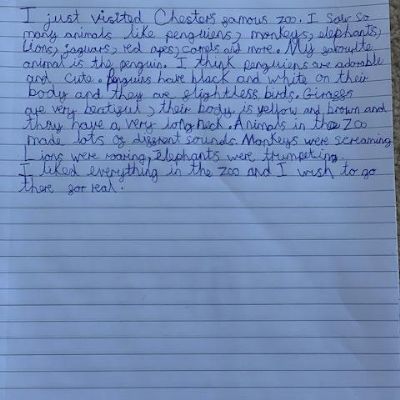 I just visited Chesters famous zoo. I saw so
many animals like penguiens, monkeys, elephants,
Lions, jaguars, red apes, camels and more. My favourite
animal is the penguin. I think penguiens are adorable
and cute. Penguins have black and white on their
body and they are flightless birds. Giraffes
are very beatiful, their body is yellow and brown and
they have a very long neck. Animals in the Zoo
made lots of different sounds. Monkeys were screaming
Lions were roaring, Elephants were trumpeting.
I liked everything in the zoo and I wish to go
there for real.